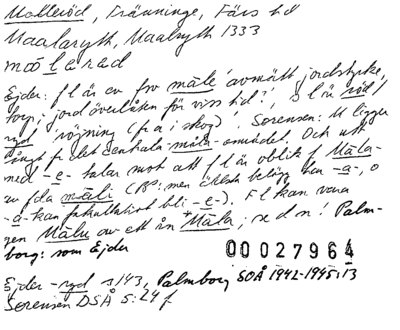 Molleröd, Tränninge, Färs hd
Maalaryth, Maalryth 1333
målarad
Ejder: f l är av fsv måle 'avmätt jordstycke,
torp; jord överlåten för viss tid?', s l är röd/
ryd 'röjning (fr a i skog)'. Sørensen: M ligger
långt fr det centrala måla-området. Och utt
med -e- talar mot att f l är oblik f Måla-
av fda måli (BP: men äldsta belägg har -a-, o
-a- kan fakultativt bli -e-). F l kan vara
gen Målu av ett ån +Måla; se d n! Palm-
borg: som Ejder
00027964
Ejder -ryd s 143, Palmborg SOÅ 1942-1945:13
Sørensen DSÅ 5:24 f